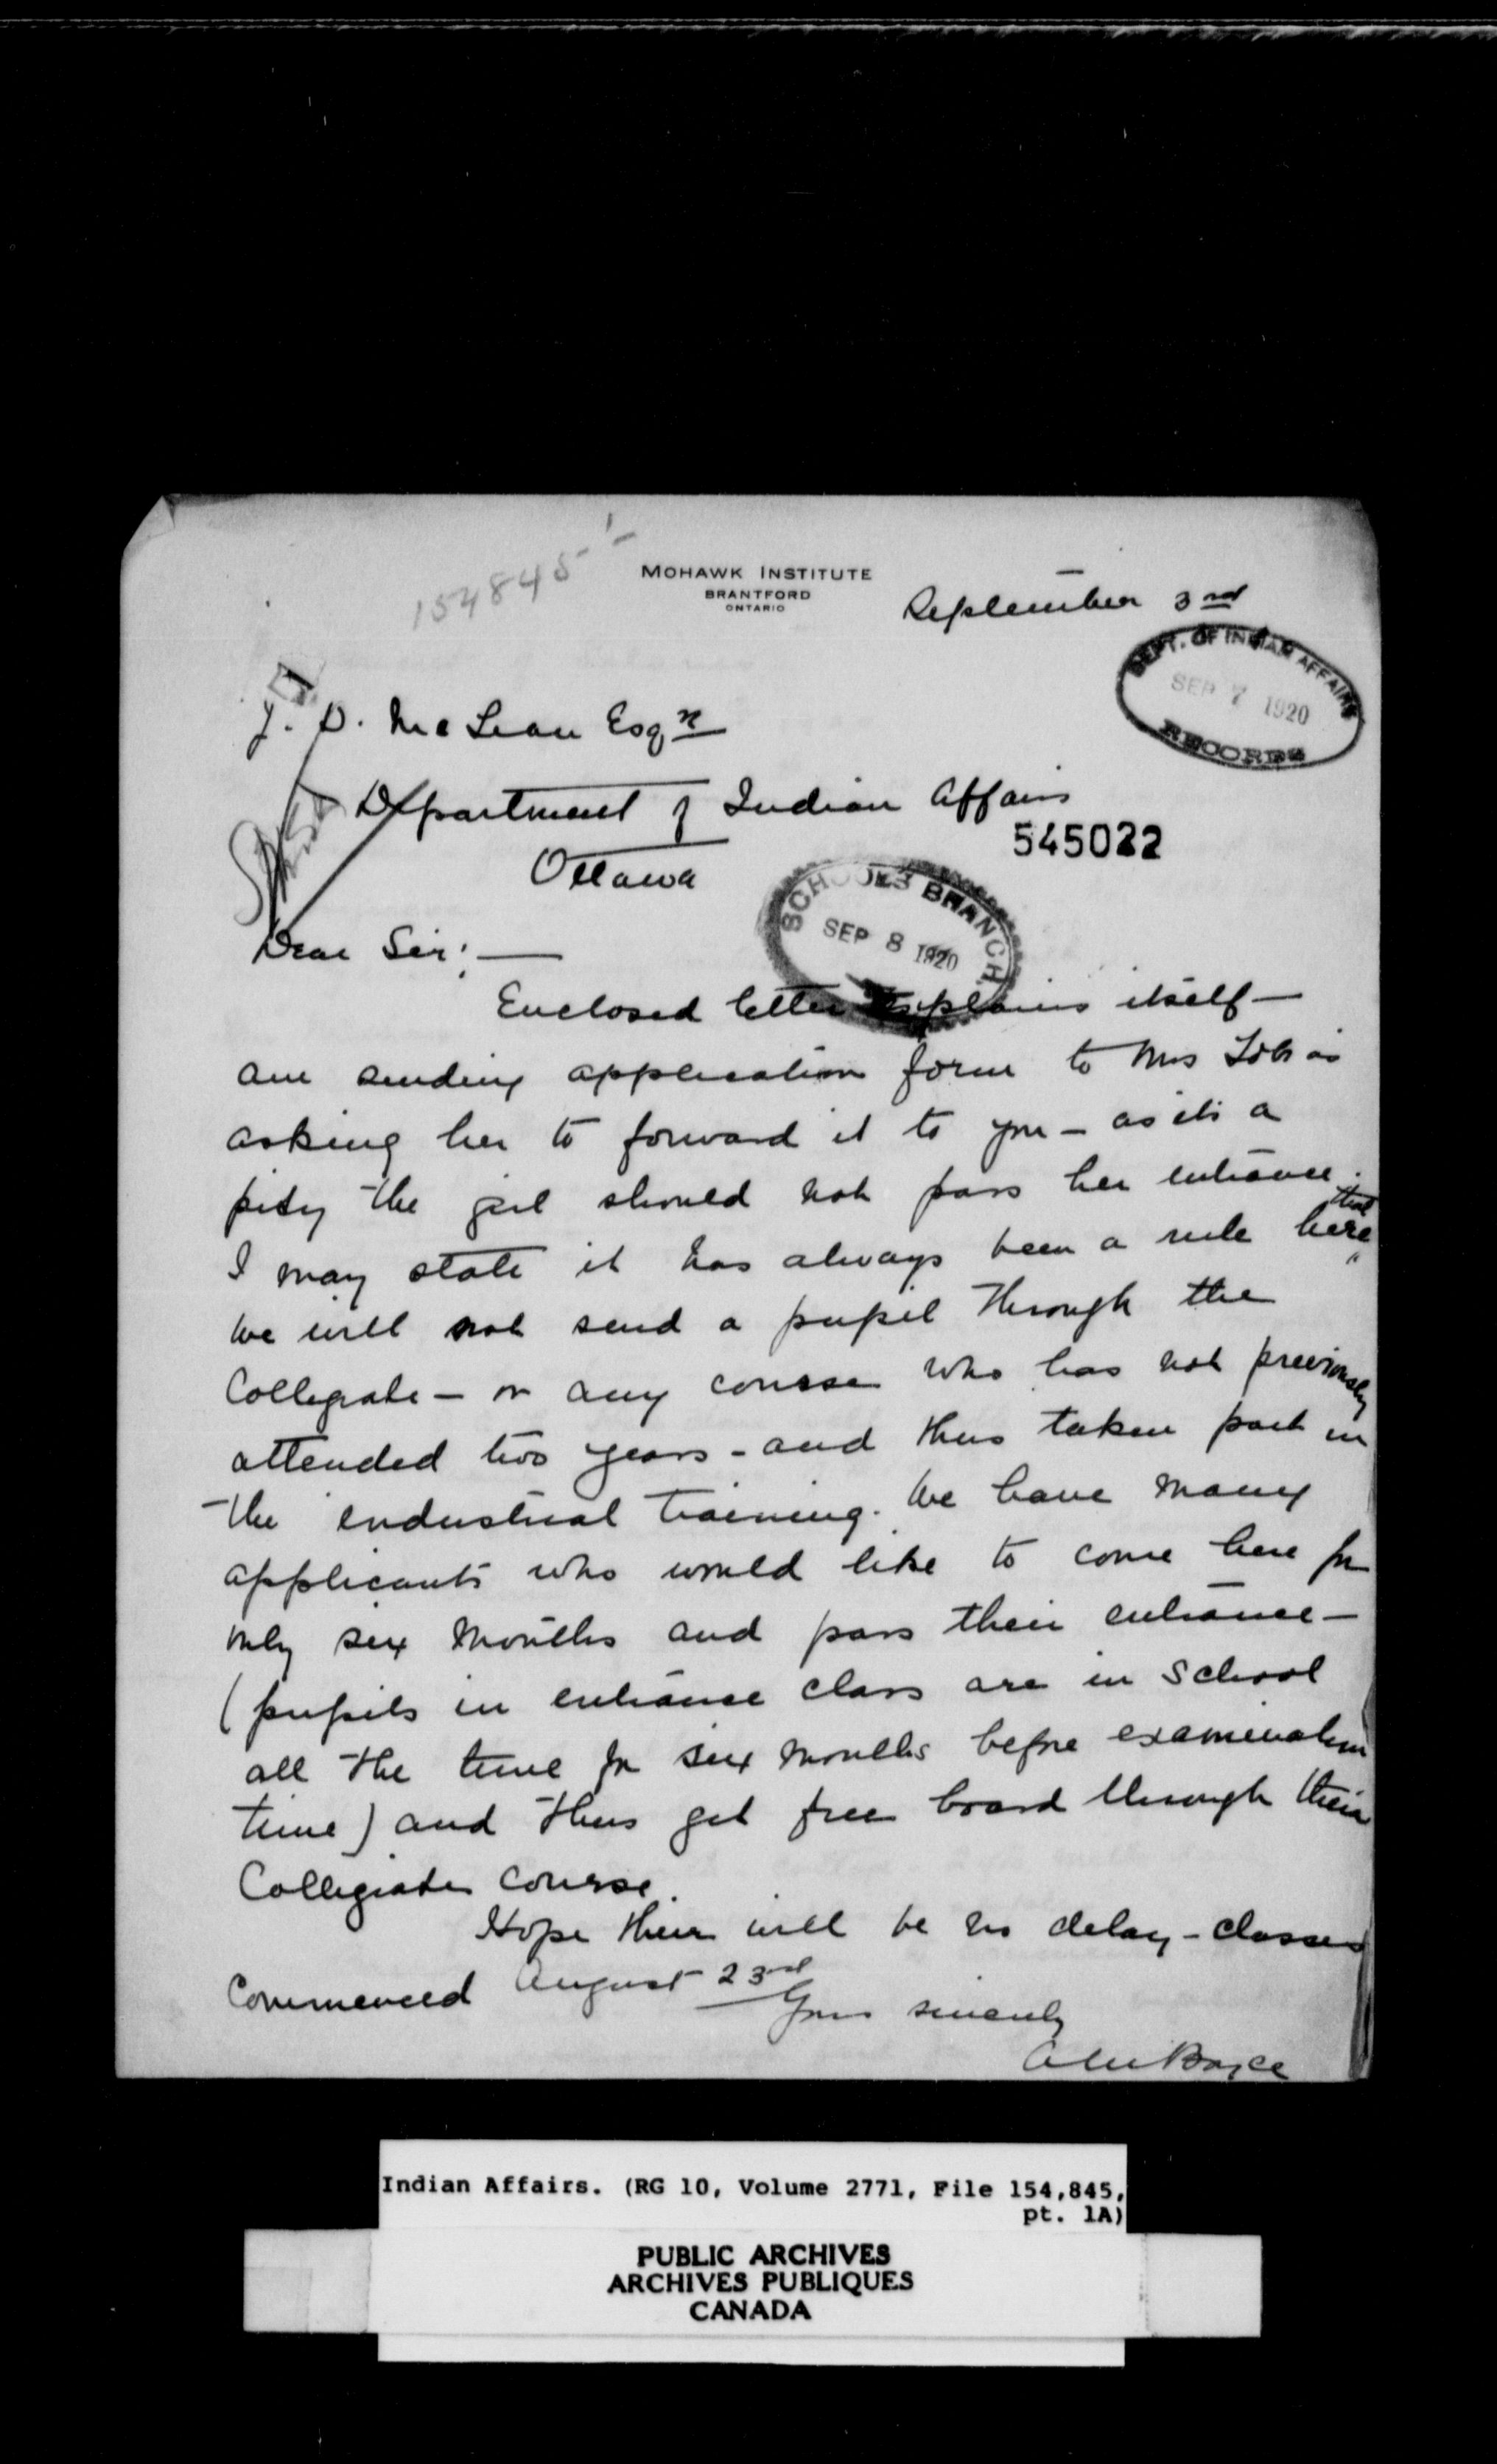 154845
MOHAWK INSTITUTE
BRANTFORD
ONTARIO
September 3rd
DEPT. OF INDIAN AFFAIRS
SEP 7 1920
RECORDS
J. D. McLean Esqr
Department of Indian Affairs
545022
Ottawa
SCHOOLS BRANCH
SEP 8 1920
Dear Sir:—
Enclosed letter explains itself—
am sending application form to Mrs
asking her to forward it to you — as its a
pity the girl should not pass her entrance.
I may state it has always been a rule here that
we will not send a pupil through the
Collegiate — or any course who has not previously
attended two years - and thus taken part in
the industrial training. We have many
applicants who would like to come here for
only six months and pass their entrance —
(pupils in entrance class are in school
all the time for six months before examination
time) and thus get free board through their
Collegiate course.
Hope there will be no delay - classes
commenced August 23rd
Yours sincerely
Boyce
Indian Affairs. (RG 10, Volume 2771, File 154,845,
pt. 1A)
PUBLIC ARCHIVES
ARCHIVES PUBLIQUES
CANADA